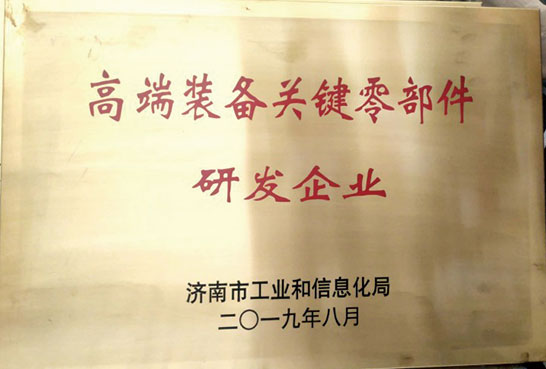 高端装备关键零部件
研发企业
济南市工业和信息化局
二〇一九年八月